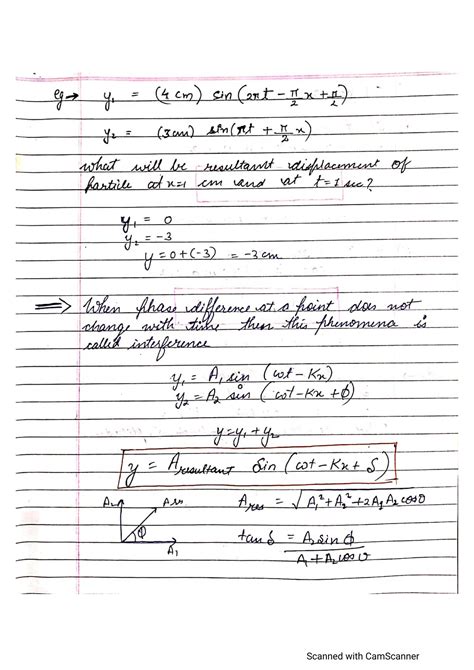 eg → y₁ = (4 cm) sin (2πt - π/2 x + π/2)
y₂ = (3cm) sin(πt + π/2 x)
what will be resultant displacement of
partile at x=1 cm and at t=1 sec?
y₁ = 0
y₂ = -3
y = 0+(-3) = -3cm
⇒ When phase difference at a point does not
change with time then this phenomena is
called interference
y₁ = A₁ sin (ωt - Kx)
y₂ = A₂ sin (ωt - Kx + ϕ)
y = y₁ + y₂
y = Aresultant sin (ωt - Kx + δ)
A₂ Ares ϕ A₁
Ares = √A₁² + A₂² + 2A₁A₂ cosθ
tan δ = A₂sin ϕ / A + A₂cos υ
Scanned with CamScanner